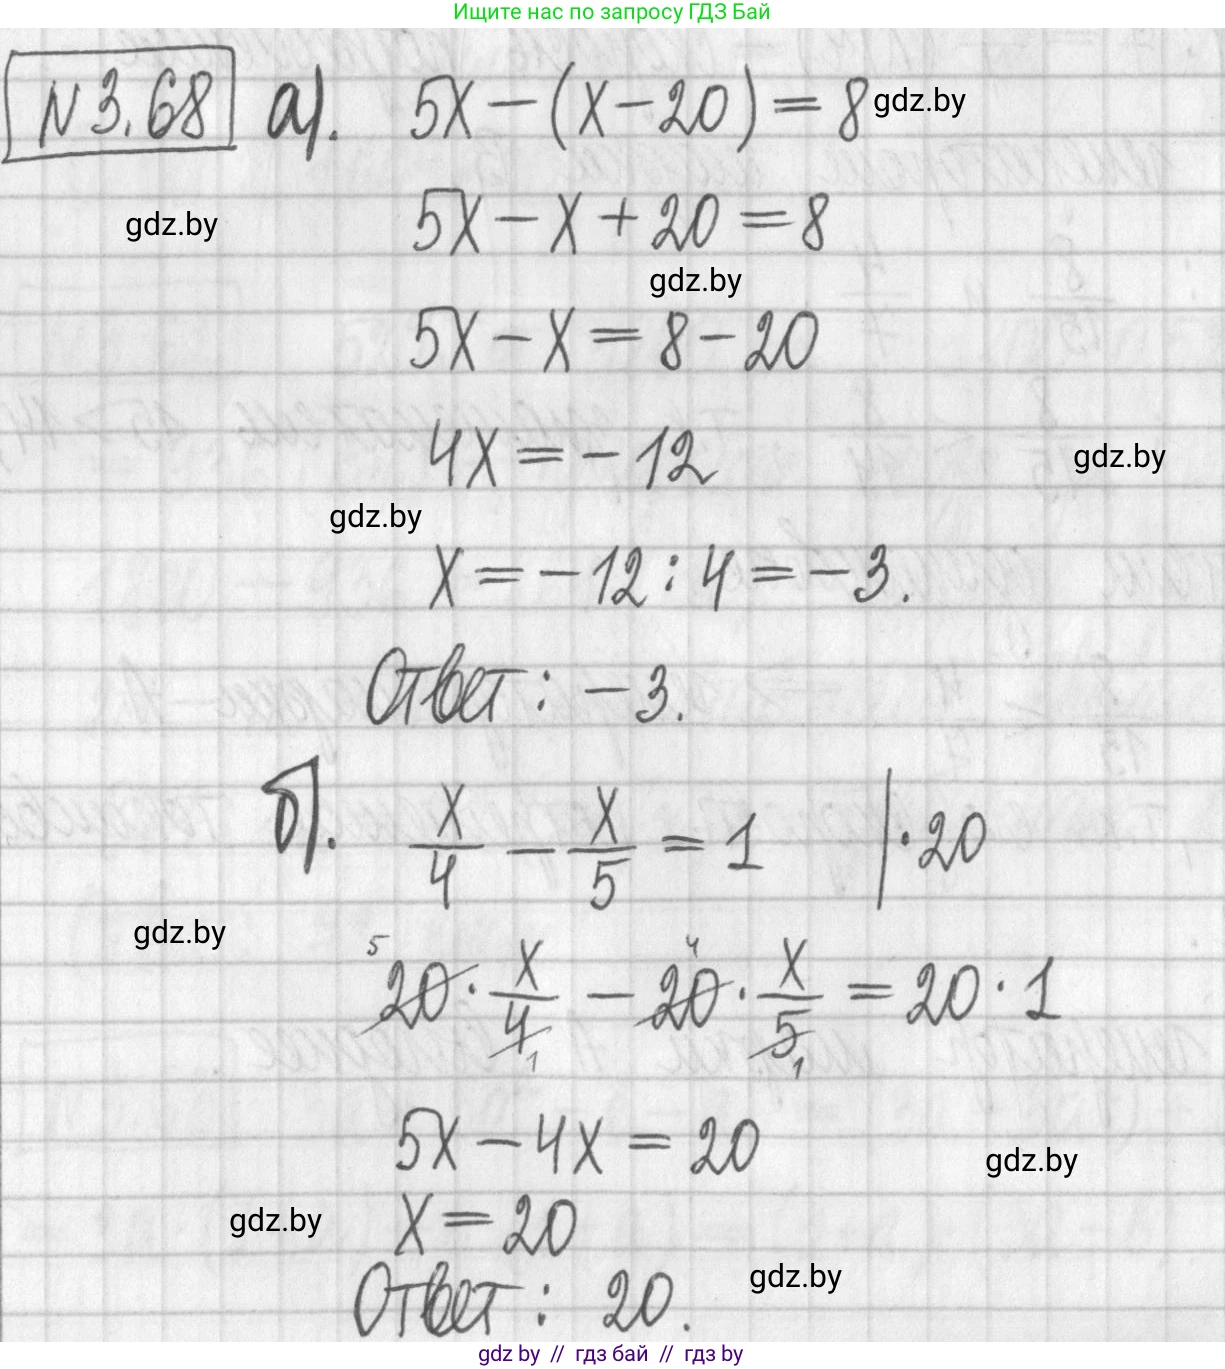 Ищите нас по запросу ГДЗ Бай
№ 3.68 а). 5x − (x − 20) = 8 gdz.by
gdz.by 5x − x + 20 = 8
gdz.by
5x − x = 8 − 20
4x = −12 gdz.by
gdz.by
x = −12 : 4 = −3.
Ответ: −3.
б). x/4 − x/5 = 1 | · 20
gdz.by
⁵20 · x/4₁ − ⁴20 · x/5₁ = 20 · 1
5x − 4x = 20
gdz.by
gdz.by x = 20
Ответ: 20. gdz.by
gdz by // гдз бай // gdz by